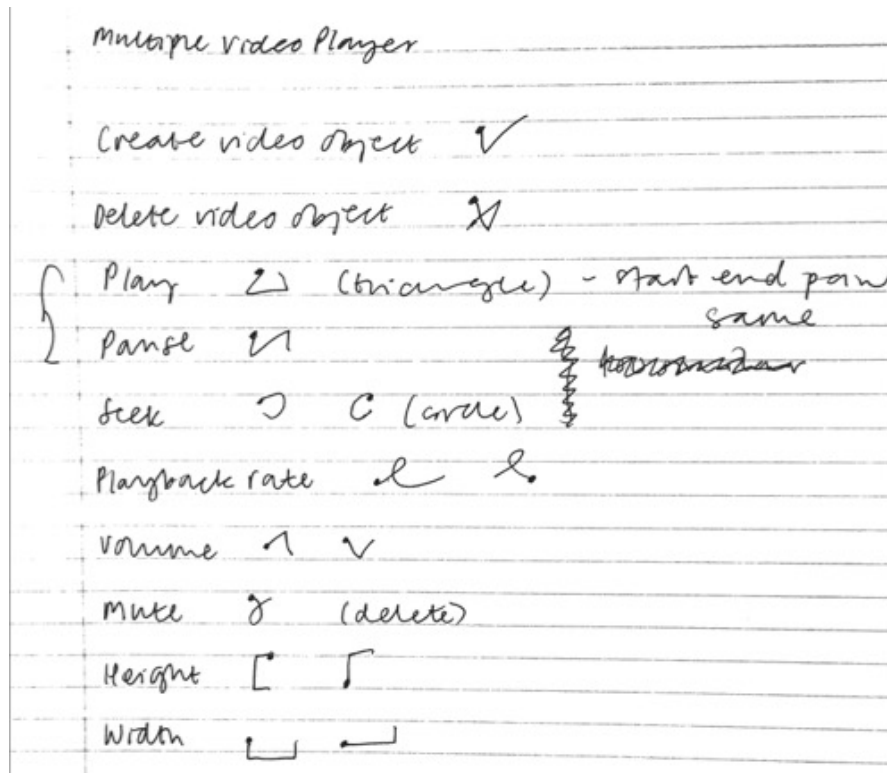 Multiple video Player
Create video object
Delete video object
Play (triangle) - start end
same
Pause
Seek (circle)
Playback rate
Volume
Mute (delete)
Height
Width